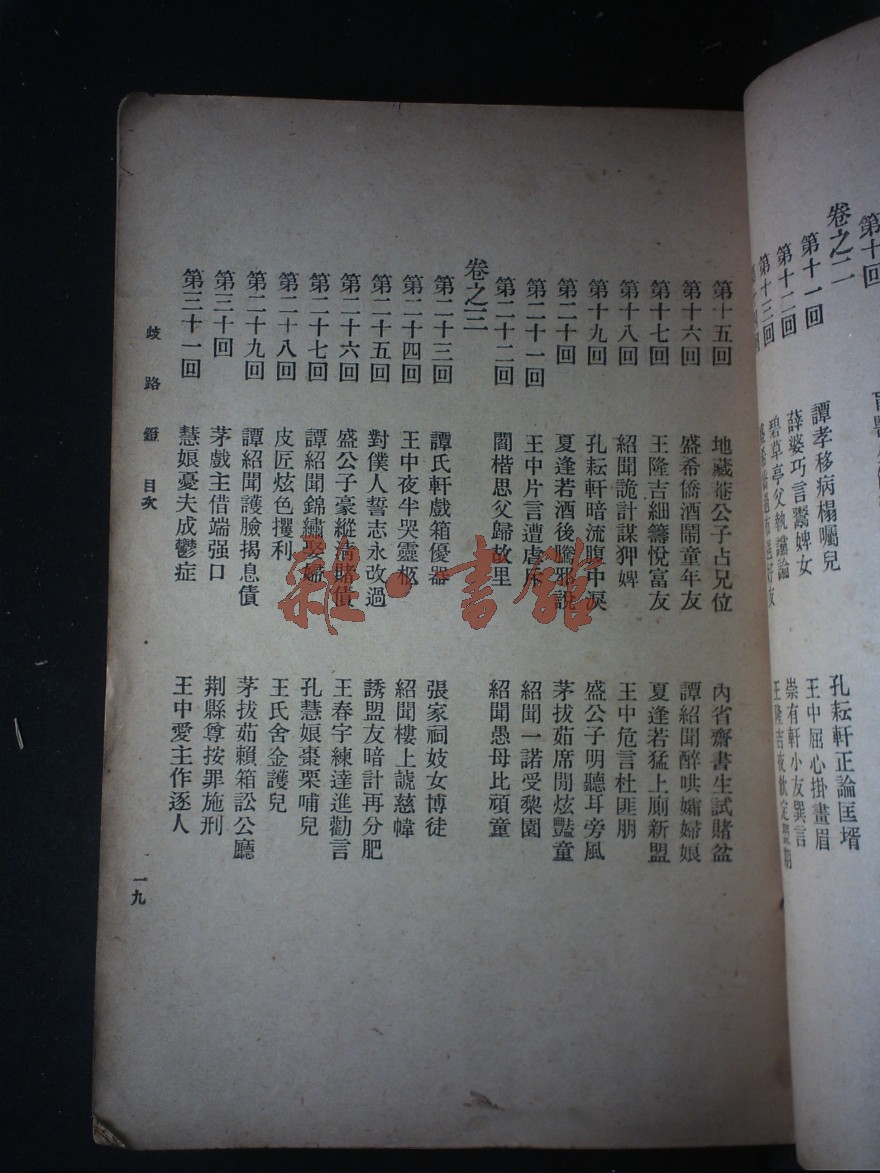 第十回
卷之二
第十一回　譚孝移病榻囑兒　孔耘軒正論匡壻
第十二回　薛婆巧言鬻婢女　王中屈心掛畫眉
第十三回　碧草亭父執讜論　崇有軒小友巽言
第十五回　地藏菴公子占兄位　內省齋書生試賭盆
第十六回　盛希僑酒鬧童年友　譚紹聞醉哄孀婦娘
第十七回　王隆吉細籌悅富友　夏逢若猛上廁新盟
第十八回　紹聞詭計謀狎婢　王中危言杜匪朋
第十九回　孔耘軒暗流腹中淚　盛公子明聽耳旁風
第二十回　夏逢若酒後騰邪說　茅拔茹席間炫豔童
第二十一回　王中片言遭虐斥　紹聞一諾受棃園
第二十二回　閻楷思父歸故里　紹聞愚母比頑童
卷之三
第二十三回　譚氏軒戲箱優器　張家祠妓女博徒
第二十四回　王中夜半哭靈柩　紹聞樓上諕慈幃
第二十五回　對僕人誓志永改過　誘盟友暗計再分肥
第二十六回　盛公子豪縱淸賭債　王春宇練達進勸言
第二十七回　譚紹聞錦繡娶婦　孔慧娘棗栗哺兒
第二十八回　皮匠炫色攫利　王氏舍金護兒
第二十九回　譚紹聞護臉揭息債　茅拔茹賴箱訟公廳
第三十回　茅戲主借端强口　荆縣尊按罪施刑
第三十一回　慧娘憂夫成鬱症　王中愛主作逐人
歧路鐙　目次　一九
雜·書館